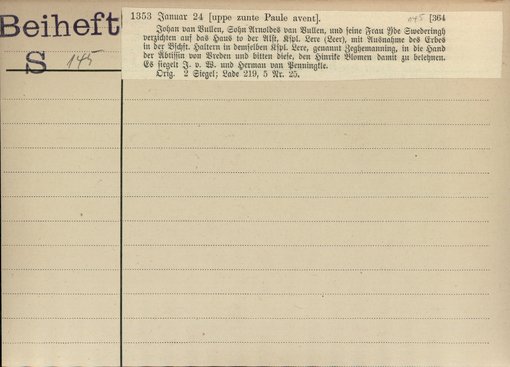 Beiheft
S 145
1353 Januar 24 [uppe zunte Paule avent]. 145 [364
Johan van Vullen, Sohn Arnoldes van Vullen, und seine Frau Yde Swederingh
verzichten auf das Haus to der Alst, Kspl. Lere (Leer), mit Ausnahme des Erbes
in der Bschft. Haltern in demselben Kspl. Lere, genannt Zeghemanning, in die Hand
der Äbtissin von Vreden und bitten diese, den Hinrike Blomen damit zu belehnen.
Es siegelt J. v. V. und Herman van Penningkle.
Orig. 2 Siegel; Lade 219, 5 Nr. 25.